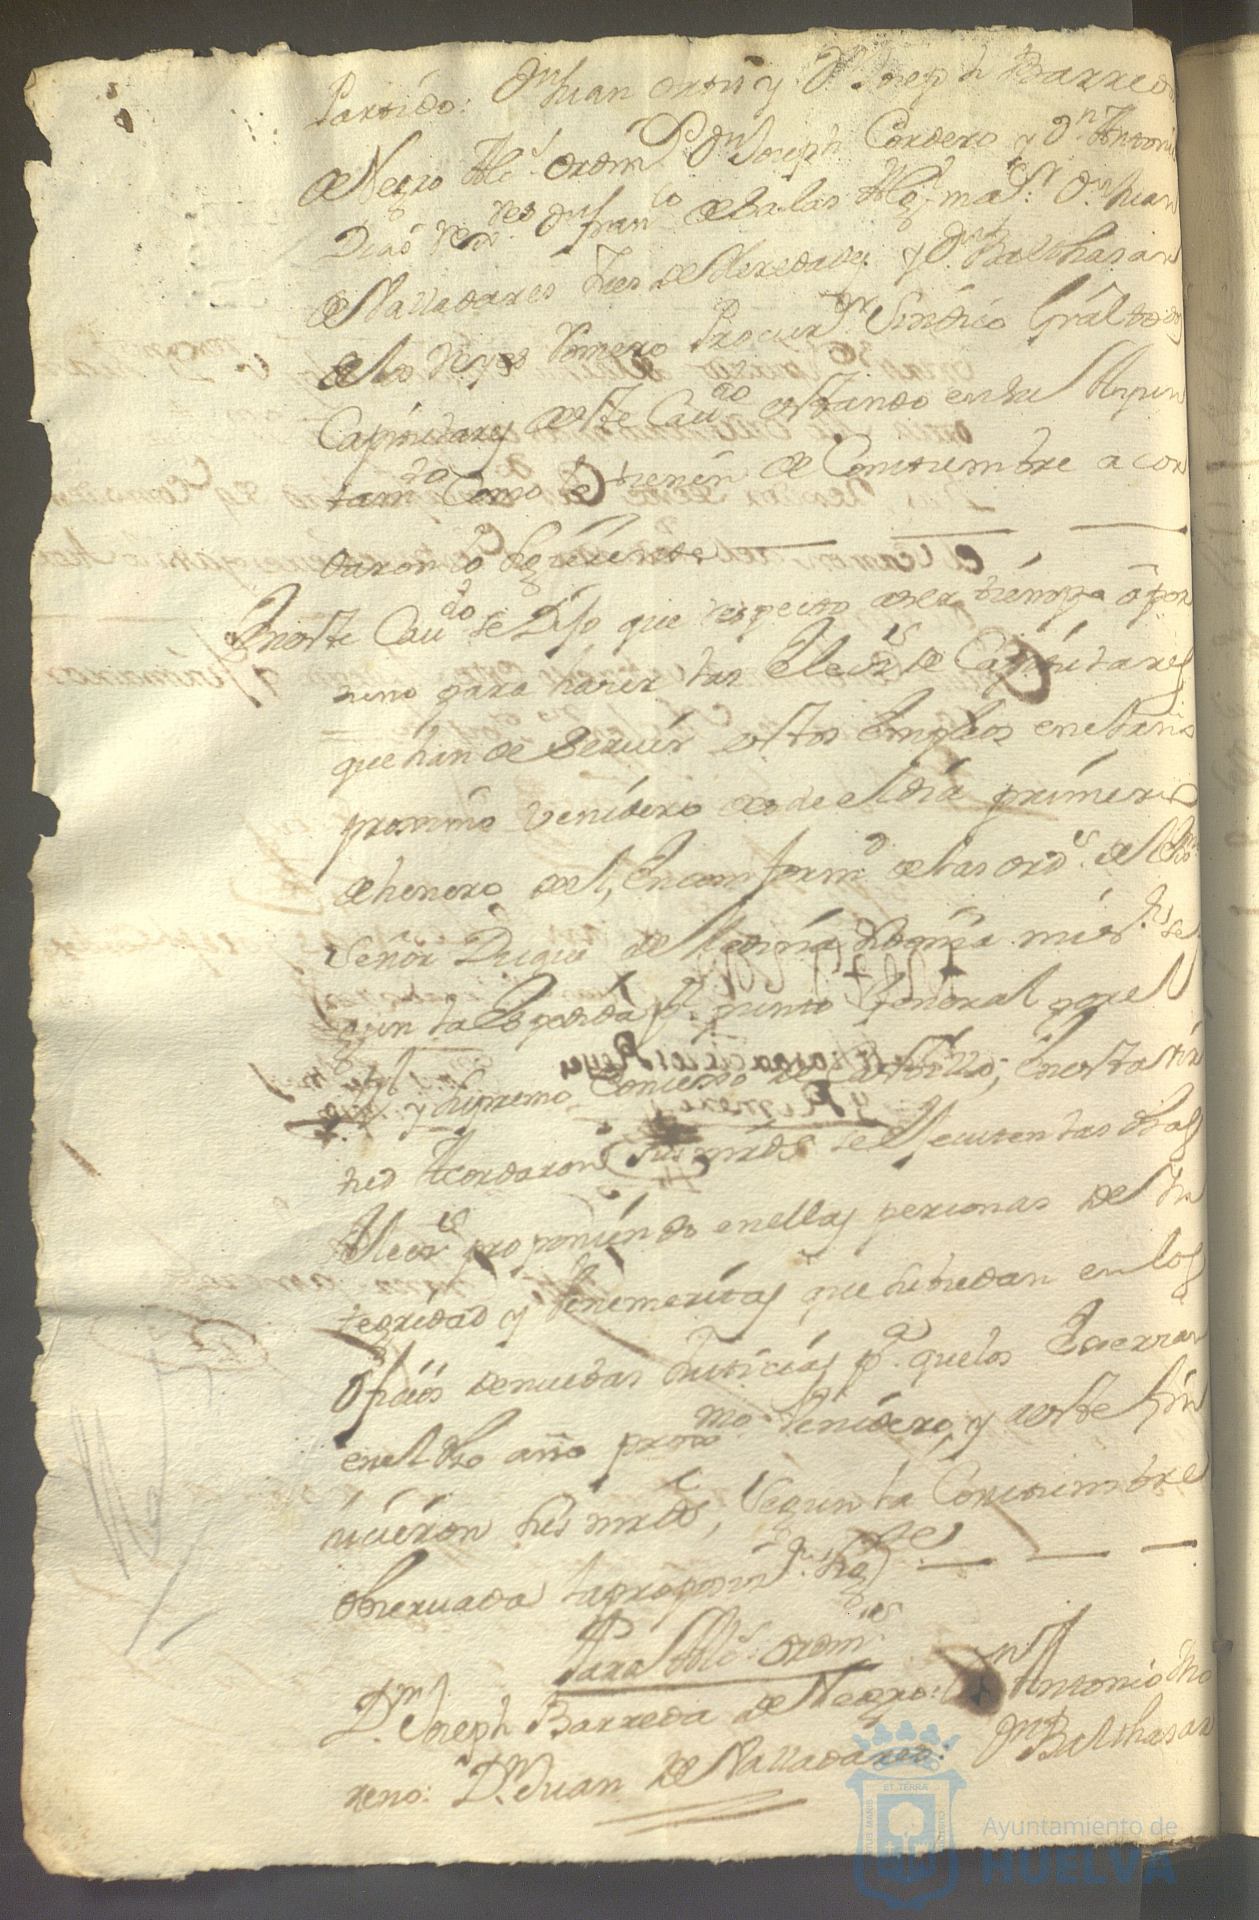 Partido: Dn Juan ortis y Dn Joseph Barreda
de Negro Alcs. ordins. Dn Joseph Cordero y Dn Antonio
Dias Dn franco de Salas Algl. mayor Dn Juan
de Valladares Jues de Heredades y Dn Balthasar
de los Reyes Romero Procurador Sindico Gral todos
Capitulares de este Cavdo estando en su Ayun
tamto Como lo tienen de Constumbre acor
daron lo siguiente
En este Cavdo se Dijo que respecto a ser tiempo opor
tuno para hacer las Elecs. de Capitulares
que han de Servir estos Empleos en el año
proximo venidero desde el dia primero
de henero del, en comformd de las ords. del Exmo
Señor Duque de Medina Sidonia mi sr. se
gun la Expedida pr. punto General por el
Rl. y Supremo Concejo de Castilla; En esta vir
tud Acordaron sus mrds se Executen las dhas
Elecs. proponiendo en ellas personas de In
tegridad y Venemeritas que subcedan en los
Oficios de nuebas Justicias pa. que los Exerzan
en el dho año proximo Venidero, y a este fin
icieron sus mrds, segun la Constumbre
observada la proposin. sigte
Para Alcs. ordins.
Dn. Joseph Barreda de Negro: Dn Antonio Mo
reno: Dn. Juan de Valladares: Dn Balthasar
ET TERRA
Ayuntamiento de
HUELVA